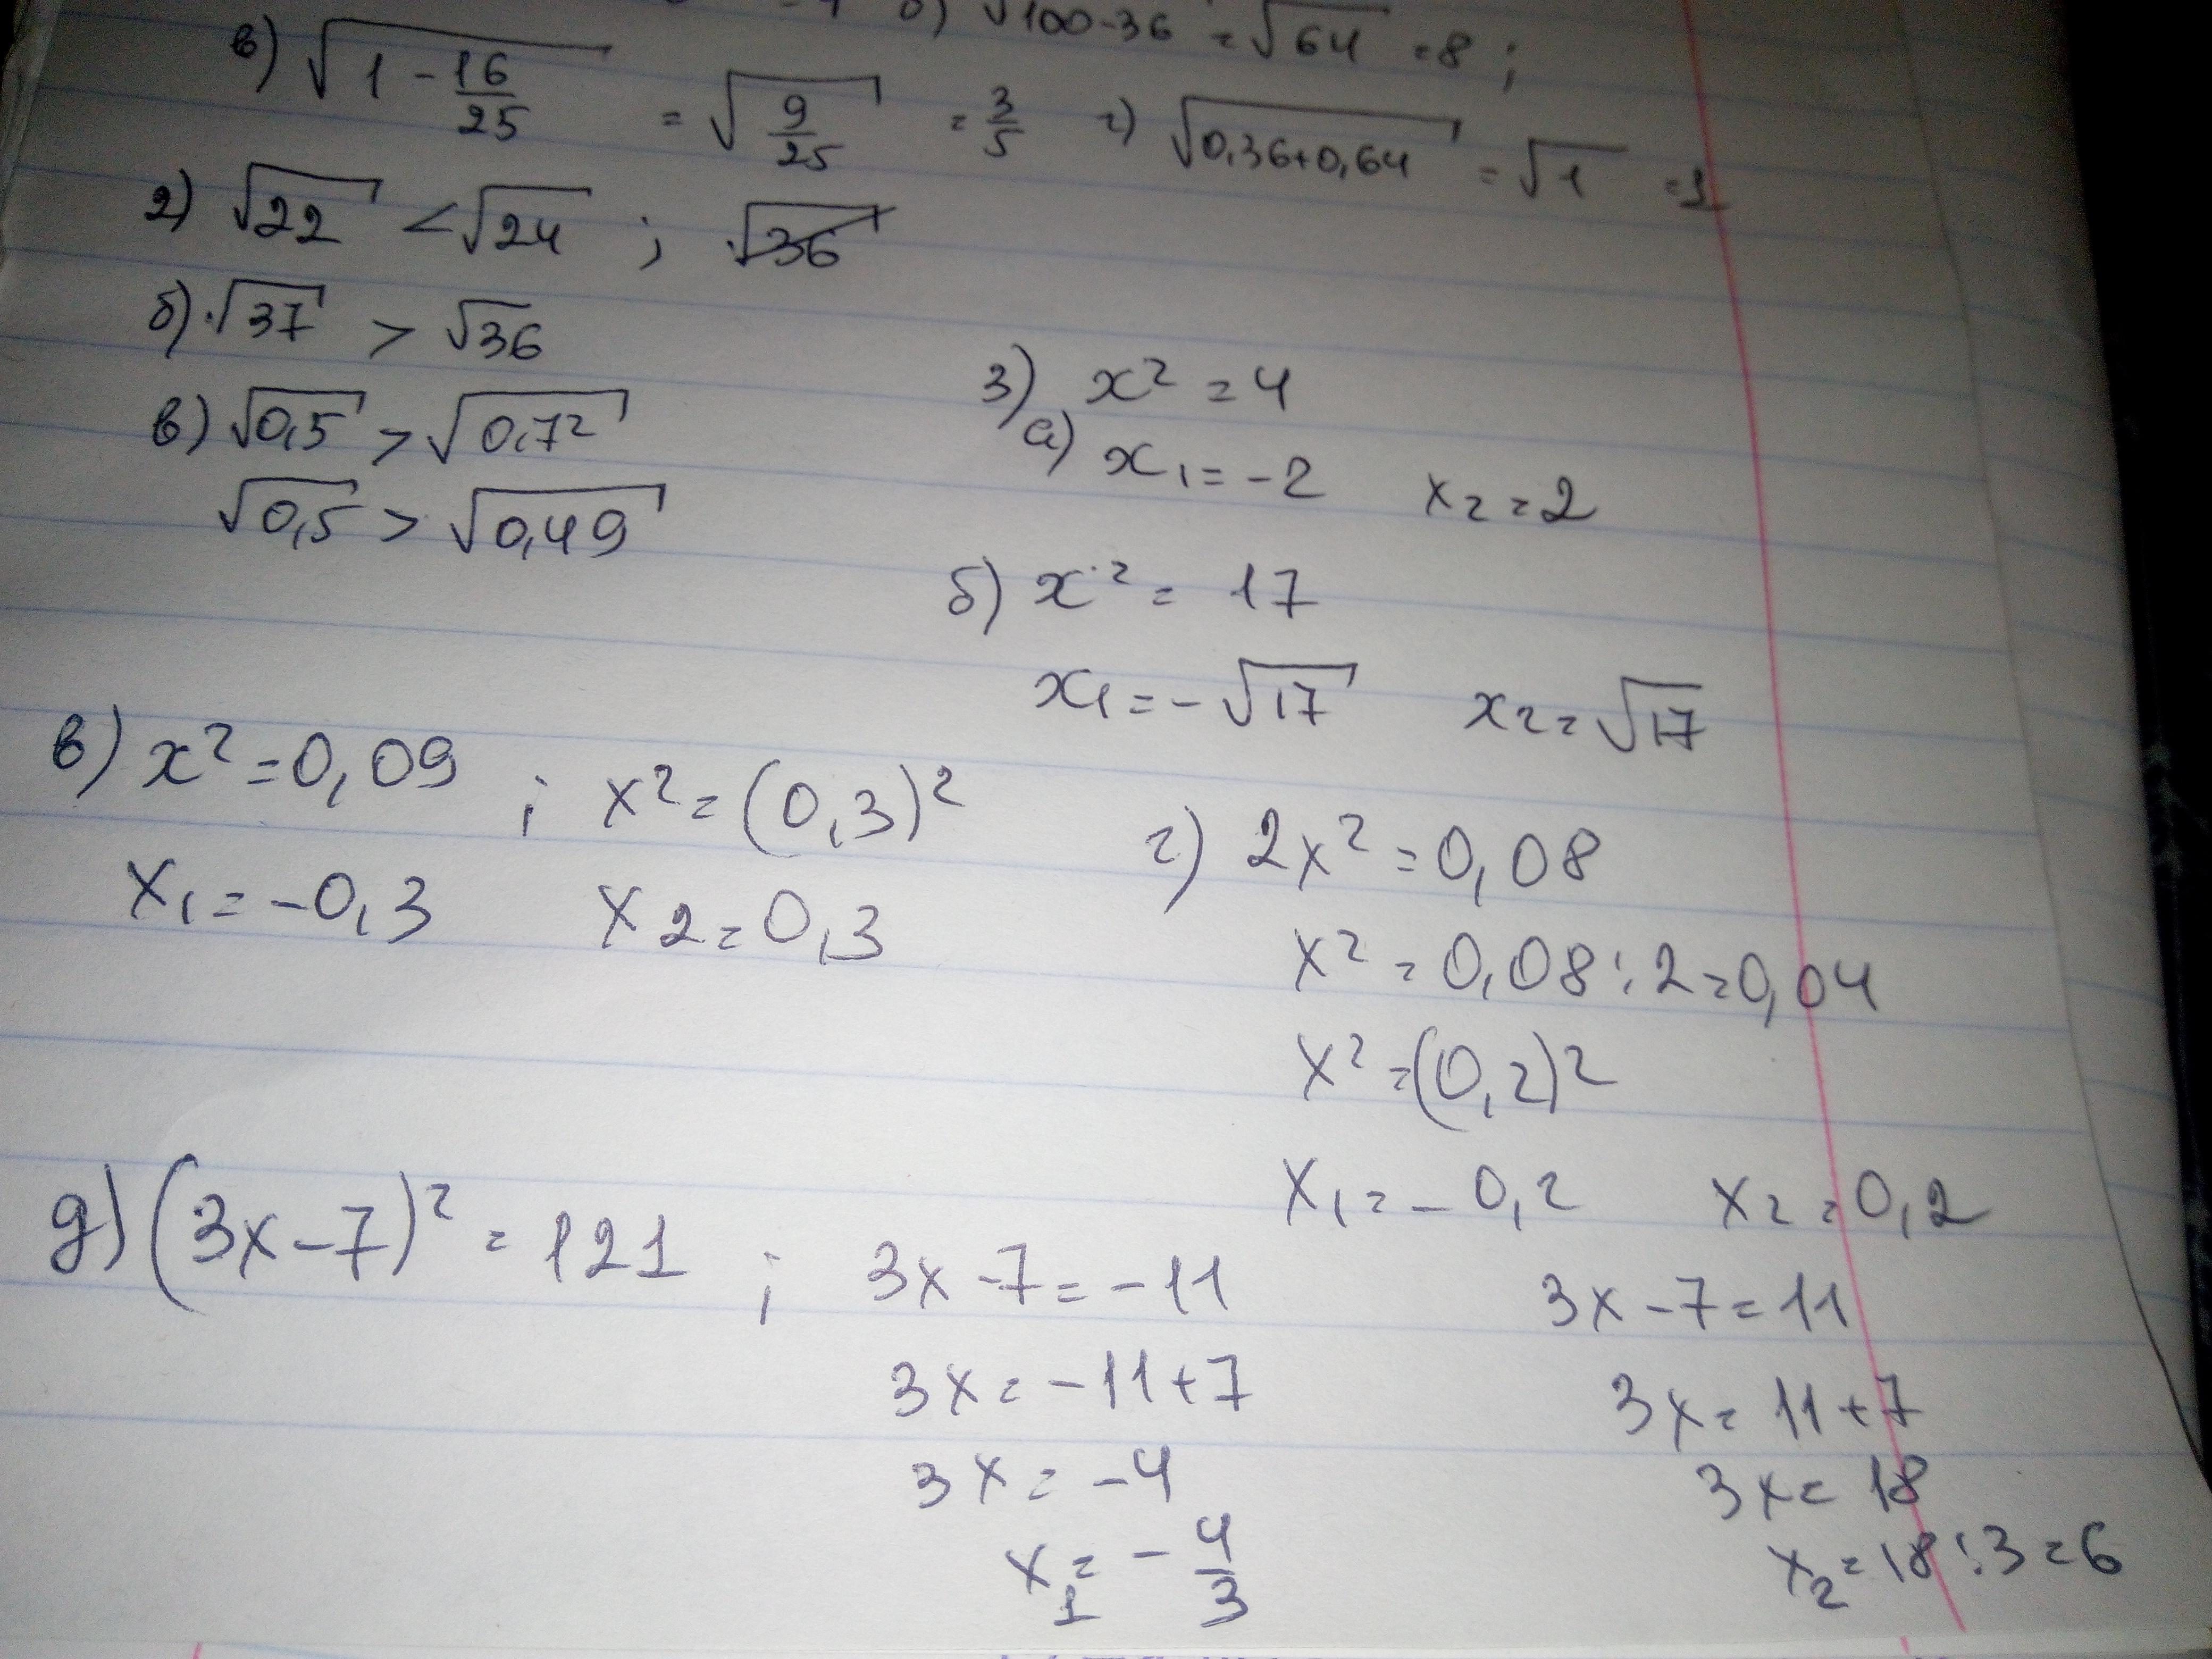 б) √100-36 = √64 = 8 ;
в) √1 - 16/25 = √9/25 = 3/5 г) √0,36+0,64 = √1 = 1
2) √22 < √24 ; √36
б) √37 > √36
в) √0,5 > √0,7²
√0,5 > √0,49
3) x² = 4
а) x₁ = -2 x₂ = 2
б) x² = 17
x₁ = -√17 x₂ = √17
в) x² = 0,09 ; x² = (0,3)²
x₁ = -0,3 x₂ = 0,3
г) 2x² = 0,08
x² = 0,08 : 2 = 0,04
x² = (0,2)²
x₁ = -0,2 x₂ = 0,2
д) (3x-7)² = 121 ; 3x-7 = -11 3x-7 = 11
3x = -11+7 3x = 11+7
3x = -4 3x = 18
x₁ = -4/3 x₂ = 18 : 3 = 6